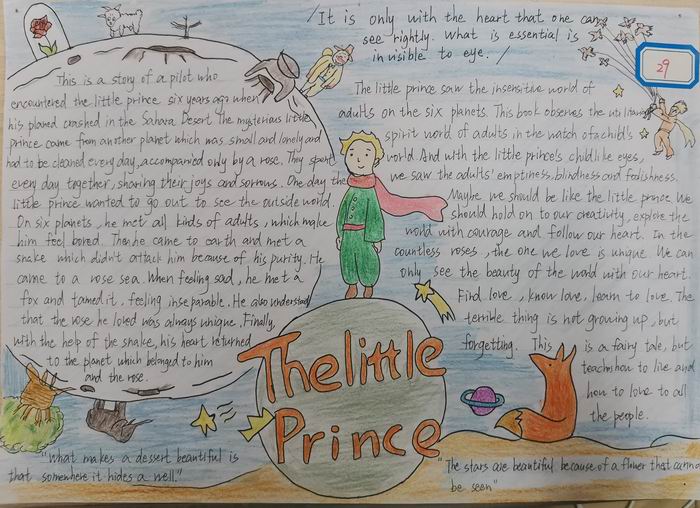 "It is only with the heart that one can
see rightly. What is essential is
invisible to eye."
29
This is a story of a pilot who
encountered the little prince six years ago when
his planed crashed in the Sahara Desert. The mysterious little
prince came from another planet which was small and lonely and
had to be cleaned every day, accompanied only by a rose. They spent
every day together, sharing their joys and sorrows. One day the
little prince wanted to go out to see the outside world.
On six planets, he met all kinds of adults, which make
him feel bored. Then he came to earth and met a
snake which didn't attack him because of his purity. He
came to a rose sea. When feeling sad, he met a
fox and tamed it, feeling inseparable. He also understood
that the rose he loved was always unique. Finally,
with the help of the snake, his heart returned
to the planet which belonged to him
and the rose.
The little prince saw the insensitive world of
adults on the six planets. This book observes the utilitarian
spirit world of adults, in the watch of a child's
world. And with the little prince's childlike eyes,
we saw the adults' emptiness, blindness and foolishness.
Maybe we should be like the little prince. We
should hold on to our creativity, explore the
world with courage and follow our heart. In the
countless roses, the one we love is unique. We can
only see the beauty of the world with our heart.
Find love, know love, learn to love. The
terrible thing is not growing up, but
forgetting. This is a fairy tale, but
teachs how to live and
how to love to all
the people.
The little
Prince
"What makes a dessert beautiful is
that somewhere it hides a well."
"The stars are beautiful, because of a flower that canno
be seen"